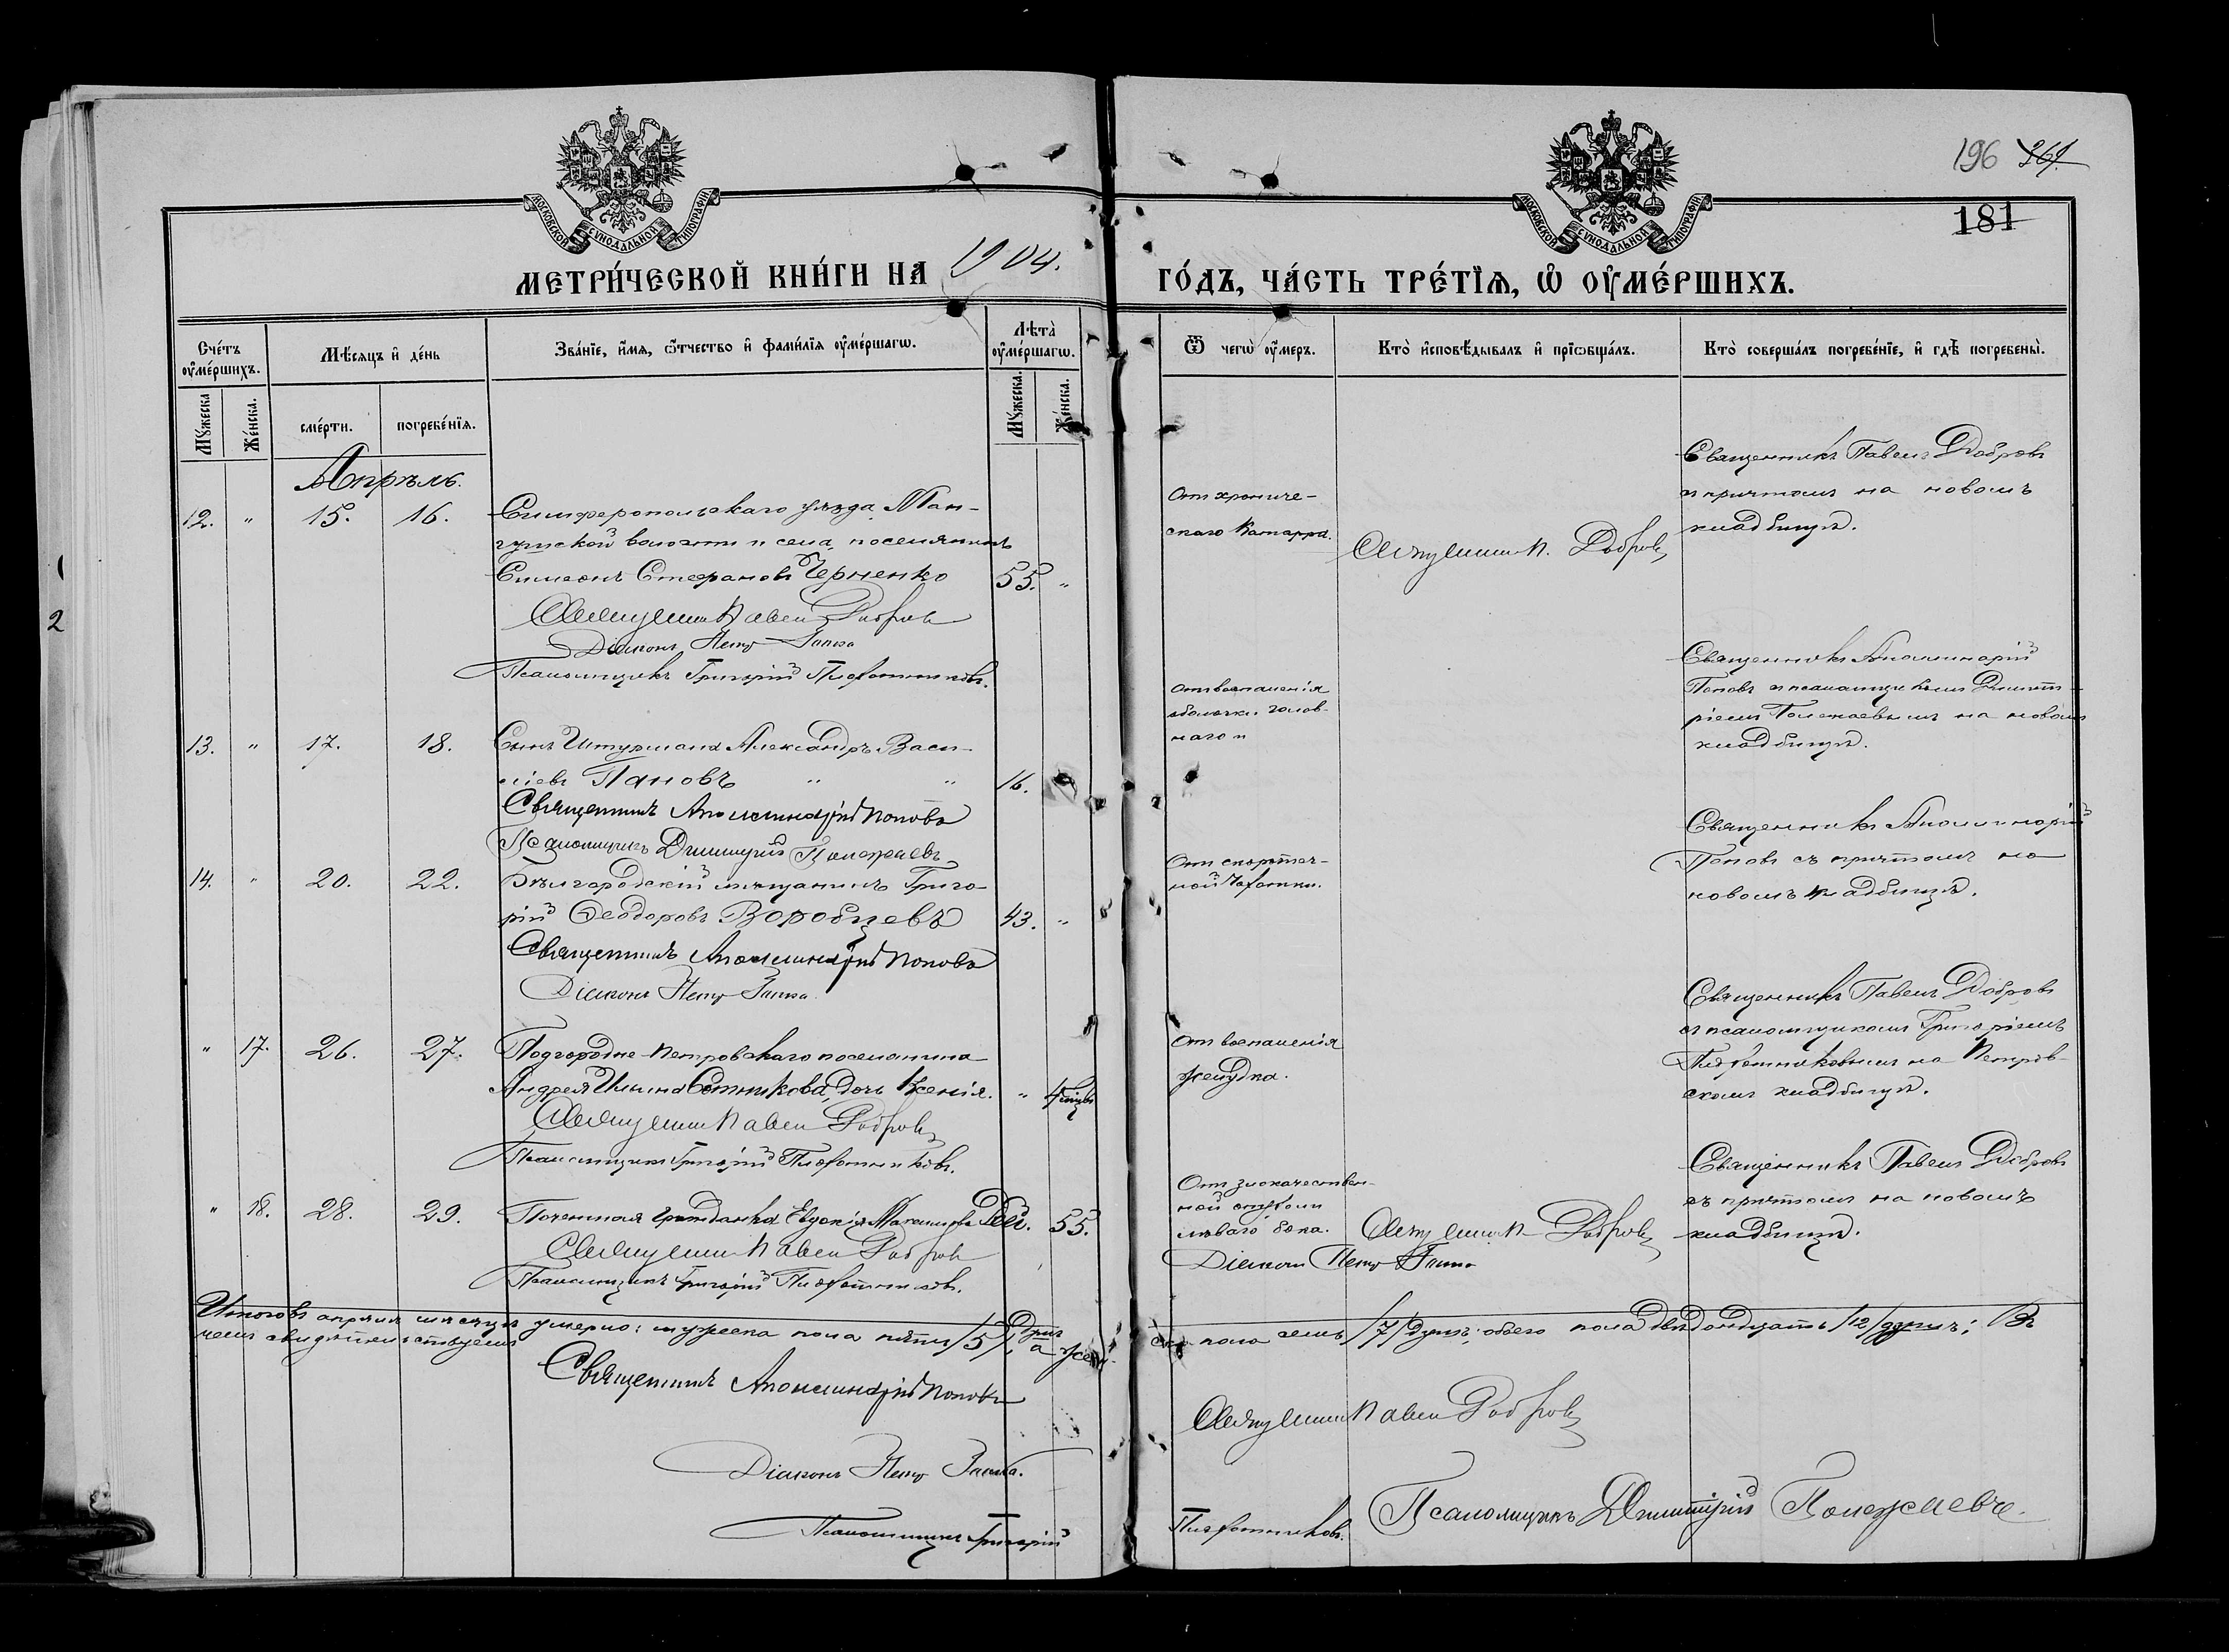 196 361
181
МОСКОВСКОЙ СѴНОДАЛЬНОЙ ТИПОГРАФІИ
МОСКОВСКОЙ СѴНОДАЛЬНОЙ ТИПОГРАФІИ
МЕТРИ́ЧЕСКОЙ КНИ́ГИ НА 1904. ГО́ДЪ, ЧА́СТЬ ТРЕ́ТЇѦ, Ѡ҆ ОУ҆МЕ́РШИХЪ.
Сче́тъ оу҆ме́ршихъ.
Мѣ́сяцъ и҆ де́нь
Зва́нїе, и҆́мѧ, ѻ҆́тчество и҆ фами́лїѧ оу҆ме́ршагѡ.
Лѣта̀ оу҆ме́ршагѡ.
Ѿ чегѡ̀ оу҆́меръ.
Кто̀ и҆сповѣ́дывалъ и҆ прїѡбща́лъ.
Кто̀ соверша́лъ погребе́нїе, и҆ гдѣ̀ погребены̀.
Мꙋ́жеска
Же́нска.
сме́рти.
погребе́нїѧ.
Мꙋ́жеска.
Же́нска.
Апрѣль.
12. " 15. 16. Симферопольскаго уѣзда, Ман-
гушской волости и села, поселянинъ
Симеонъ Стефановъ Черненко 55. "
Священникъ Павелъ Добровъ
Діаконъ Петръ
Псаломщикъ Григорій
Отъ хрониче-
скаго Катарра.
Священникъ П. Добровъ
Священникъ Павелъ Добровъ
съ причтомъ на новомъ
кладбищѣ.
13. " 17. 18. Сынъ Штурмана Александръ Васи-
ліевъ Пановъ " " 16.
Священникъ Аполлинарій Поповъ
Псаломщикъ Димитрій Полежаевъ
Отъ воспаленія
оболочки голов-
наго
Священникъ Аполлинарій
Поповъ и псаломщикомъ Димит-
ріемъ Полежаевымъ на новомъ
кладбищѣ.
14. " 20. 22. Бѣлгородскій мѣщанинъ Григо-
рій Ѳеодоровъ Воробьевъ 43. "
Священникъ Аполлинарій Поповъ
Діаконъ Петръ
Отъ скоротеч-
ной Чахотки.
Священникъ Аполлинарій
Поповъ съ причтомъ на
новомъ кладбищѣ.
" 17. 26. 27. Подгородне-Петровскаго поселянина
Андрея Ильина Сотникова, дочь Ксенія. " 4 мѣсц.
Священникъ Павелъ Добровъ
Псаломщикъ Григорій
Отъ воспаленія
желудка.
Священникъ Павелъ Добровъ
съ псаломщикомъ Григоріемъ
на Петров-
скомъ кладбищѣ.
" 18. 28. 29. Почетная гражданка Евдокія 55.
Священникъ Павелъ Добровъ
Псаломщикъ Григорій
Отъ злокачествен-
ной опухоли
лѣваго бока.
Діаконъ Петръ
Священникъ П. Добровъ
Священникъ Павелъ Добровъ
съ причтомъ на новомъ
кладбищѣ.
Итого въ апрѣлѣ мѣсяцѣ умерло: мужеска пола пять /5/ душъ, а жен-
ска пола семь /7/ душъ; обоего пола двѣнадцать /12/ душъ; Въ
чемъ свидѣтельствуемъ
Священникъ Аполлинарій Поповъ
Священникъ Павелъ Добровъ
Діаконъ Петръ
Псаломщикъ Григорій
Псаломщикъ Димитрій Полежаевъ.
2